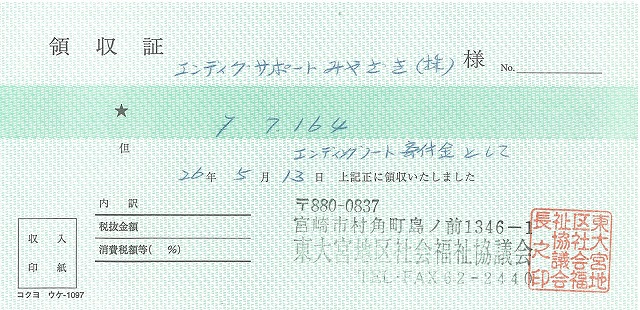 領収証
エンディグ・サポートみやざき(株) 様
No.
★
¥ 7,164
但 エンディグノート寄付金として
26年 5月 13日 上記正に領収いたしました
内訳
税抜金額
消費税額等( %)
収入
印紙
コクヨ ウケ-1097
〒880-0837
宮崎市村角町島ノ前1346-1
東大宮地区社会福祉協議会
TEL・FAX 62-2440
東大宮地
区社会福
祉協議会
長之印